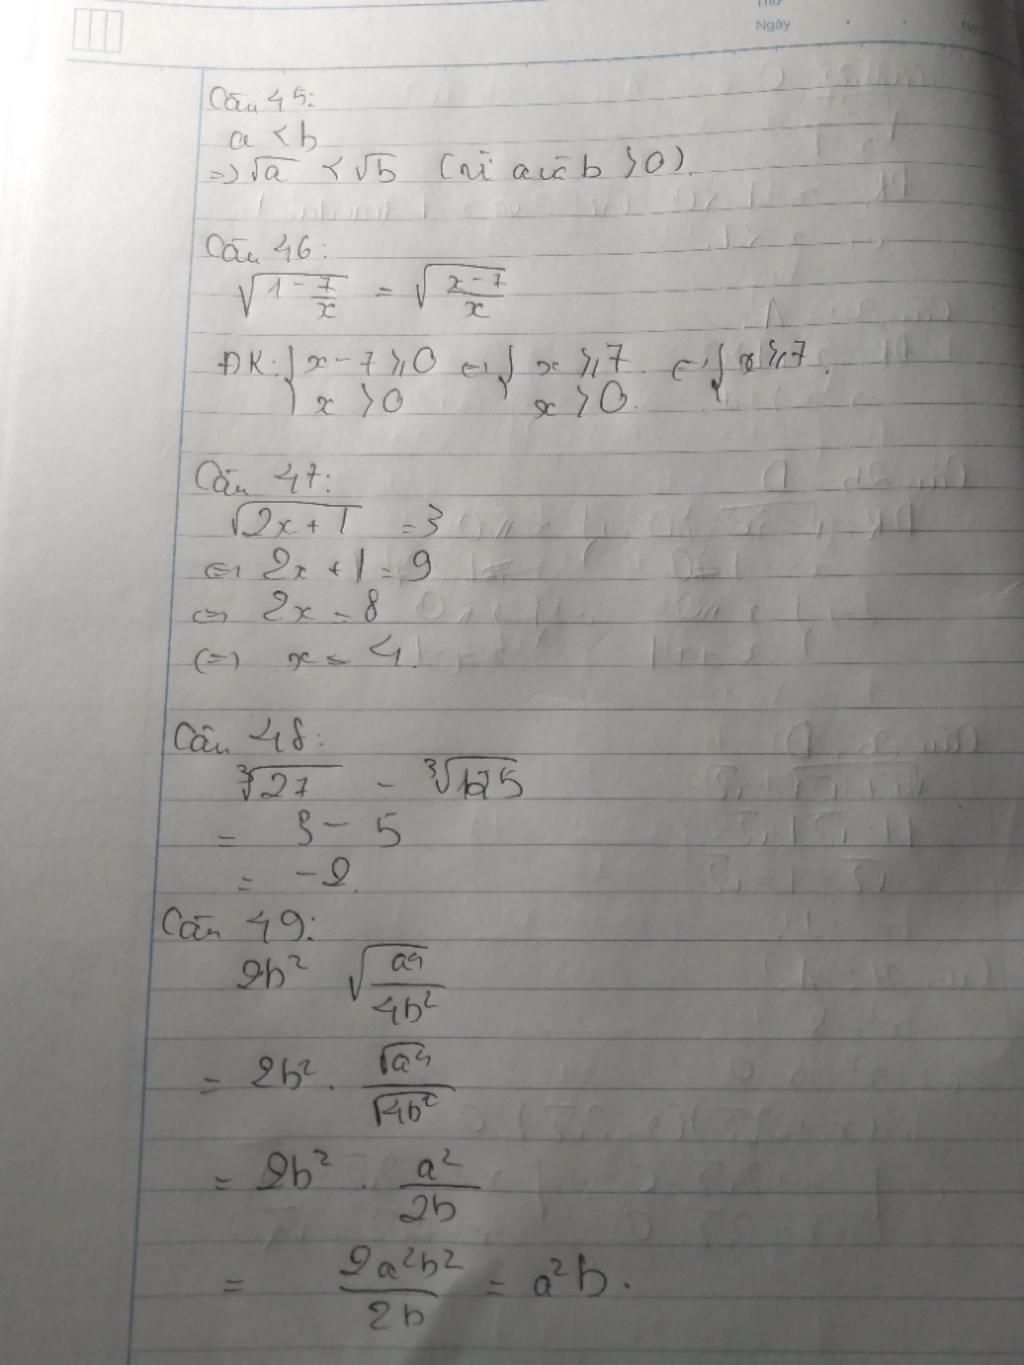 Thứ
Ngày No.
Câu 45:
a < b
=> √a < √b (vì a và b > 0).
Câu 46:
√(1 - 7/x) = √((x - 7)/x)
ĐK: { x - 7 ≥ 0 <=> { x ≥ 7 <=> { x ≥ 7.
x > 0 x > 0.
Câu 47:
√(2x + 1) = 3
<=> 2x + 1 = 9
<=> 2x = 8
<=> x = 4.
Câu 48:
∛27 - ∛125
= 3 - 5
= -2.
Câu 49:
2b² √(a⁴/4b²)
= 2b² . √a⁴/√4b²
= 2b² . a²/2b
= 2a²b²/2b = a²b.